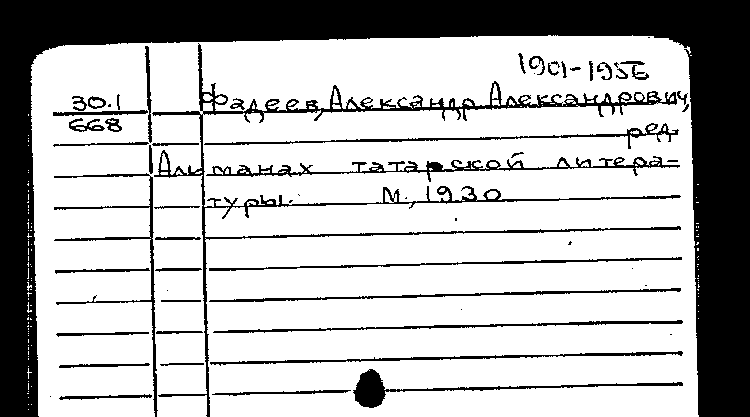 1901-1956
30.1
668
Фадеев, Александр Александрович,
ред.
Альманах татарской литера-
туры. М., 1930